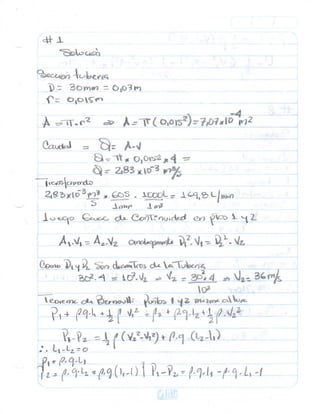 # 1
Solución
Sección tubería
D = 30mm = 0,03m
r = 0,015m
A = π.r² ⇒ A = π(0,015²) = 7,07x10⁻⁴ m²
Caudal = Q = A.V
Q = π x 0,015² x 4 =
Q = 2,83 x10⁻³ m³/s
Transformando
2,83x10⁻³ m³/s x 60s/1min x 1000L/1m³ = 169,8 L/min
Luego Ecuac de Continuidad en ptos 1 y 2
A₁.V₁ = A₂.V₂ D₁².V₁ = D₂².V₂
Como D₁ y D₂ Son diametros de la Tuberia
30².4 = 10².V₂ ⇒ V₂ = 30².4/10² ⇒ V₂ = 36 m/s
Teorema de Bernoulli Puntos 1 y 2 misma altura
P₁ + ρ.g.h₁ + ½ ρ V₁² = P₂ + ρ.g.h₂ + ½ ρ.V₂²
P₁-P₂ = ½ ρ (V₂²-V₁²) + ρ.g.(L₂-L₁)
∴ L₁-L₂=0
P₁ = ρ.g.L₁
P₂ = ρ.g.L₂ = ρ.g(L₁-l) P₁-P₂ = ρ.g.l₁ - ρ.g.L₁-l